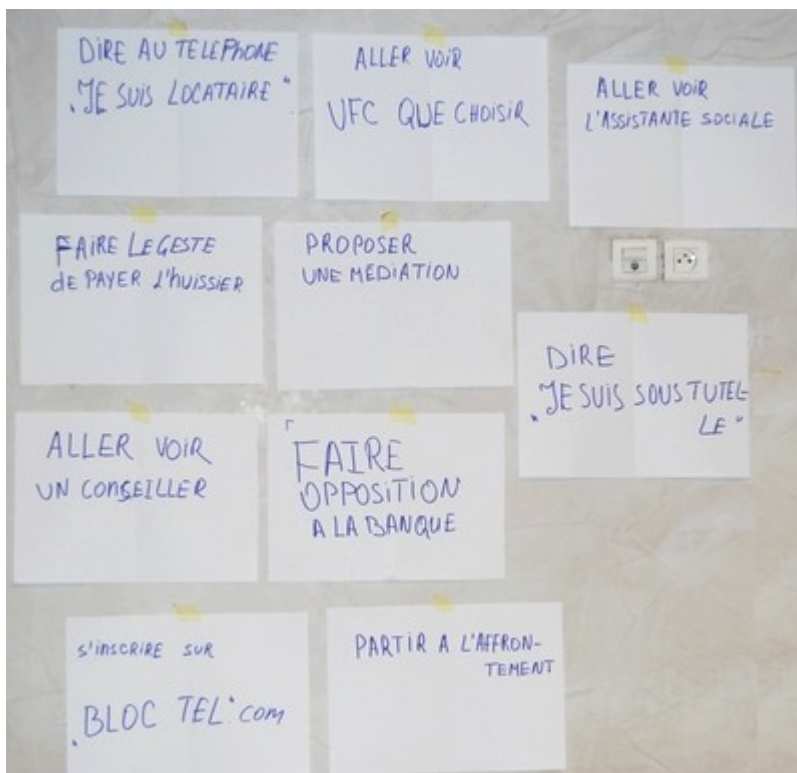 DIRE AU TELEPHONE
"JE SUIS LOCATAIRE"
ALLER VOIR
UFC QUE CHOISIR
ALLER VOIR
L'ASSISTANTE SOCIALE
FAIRE LE GESTE
de PAYER l'huissier
PROPOSER
UNE MEDIATION
DIRE
"JE SUIS SOUS TUTEL-
LE"
ALLER VOIR
UN CONSEILLER
FAIRE
OPPOSITION
A LA BANQUE
s'inscrire sur
"BLOC TEL" com
PARTIR A L'AFFRON-
TEMENT